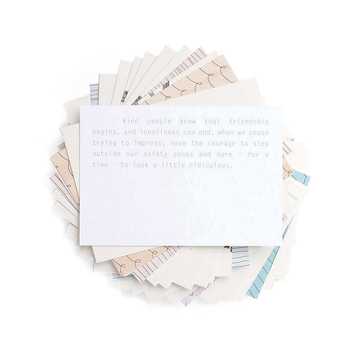 Kind people know that friendship
begins, and loneliness can end, when we cease
trying to impress, have the courage to step
outside our safety zones and dare – for a
time – to look a little ridiculous.